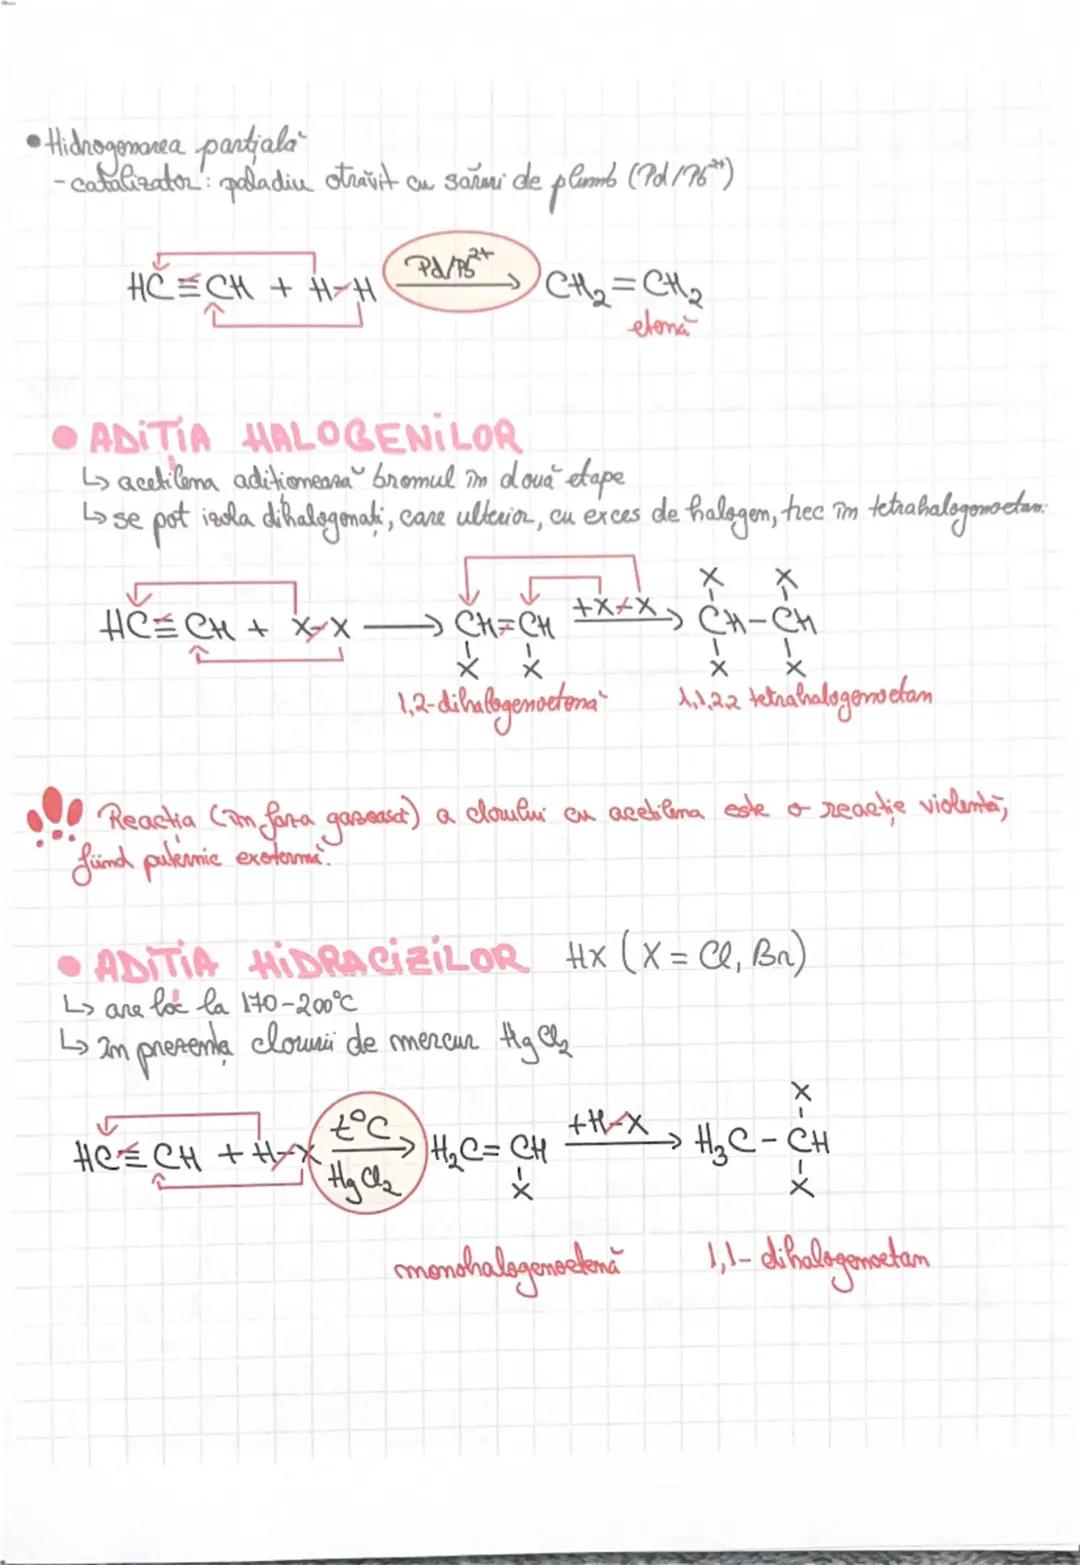 • Hidrogenarea parțială
- catalizator: paladiu otrăvit cu săruri de plumb (Pd/Pb²⁺)
HC≡CH + H-H Pd/Pb²⁺ → CH₂=CH₂
etenă
• ADIȚIA HALOGENILOR
↳ acetilena adiționează bromul în două etape
↳ se pot izola dihalogenați, care ulterior, cu exces de halogen, trec în tetrahalogenoetan.
X X
HC≡CH + X-X → CH=CH +X-X → CH-CH
X X X X
1,2-dihalogenoetenă 1,1,2,2 tetrahalogenoetan
!!! Reacția (în faza gazoasă) a clorului cu acetilena este o reacție violentă,
fiind puternic exotermă.
• ADIȚIA HIDRACIZILOR HX (X = Cl, Br)
↳ are loc la 170-200°C
↳ în prezența clorurii de mercur HgCl₂
X
HC≡CH + H-X t°C HgCl₂ → H₂C=CH +H-X → H₃C-CH
X X
monohalogenoetenă 1,1-dihalogenoetan